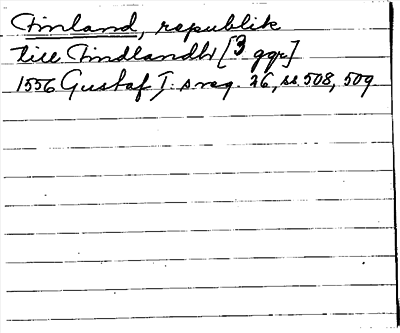 Finland, republik
till Findlandh [3 ggr]
1556 Gustaf I:s reg. 26, ss. 508, 509